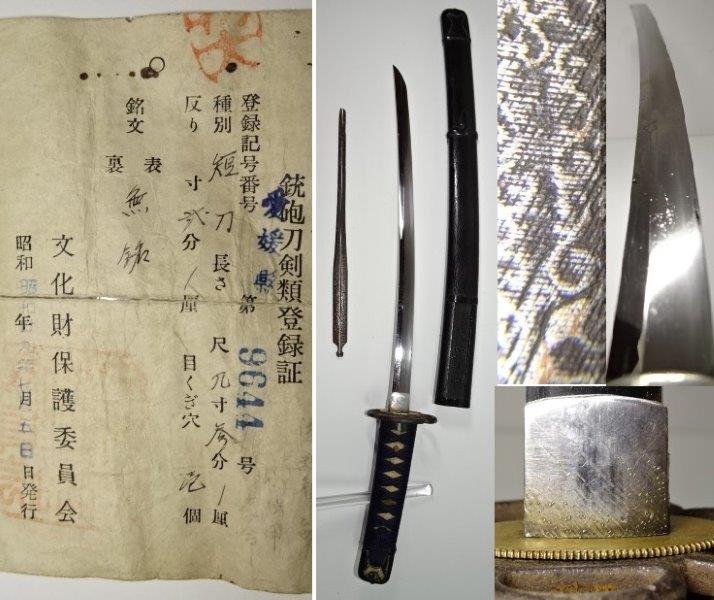 銃砲刀剣類登録証
登録記号番号 愛媛県 第 9644 号
種別 短刀 長さ 尺 九寸 参分 厘
反り 寸 弐分 八厘 目くぎ穴 壱個
銘文 表 無銘
裏
文化財保護委員会
昭和 年 月 五日 日発行